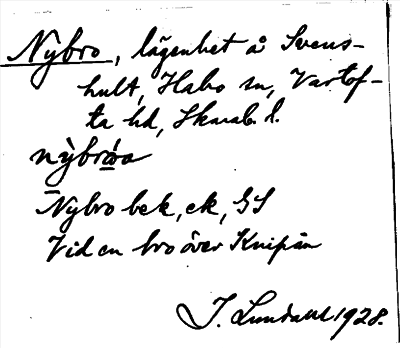 Nybro, lägenhet å Svens-
hult, Habo sn, Vartof-
ta hd, Skarab. l.
nỳbrωa
Nybro bek, ek, GS
Vid en bro över Knipån
J. Lundahl 1928.